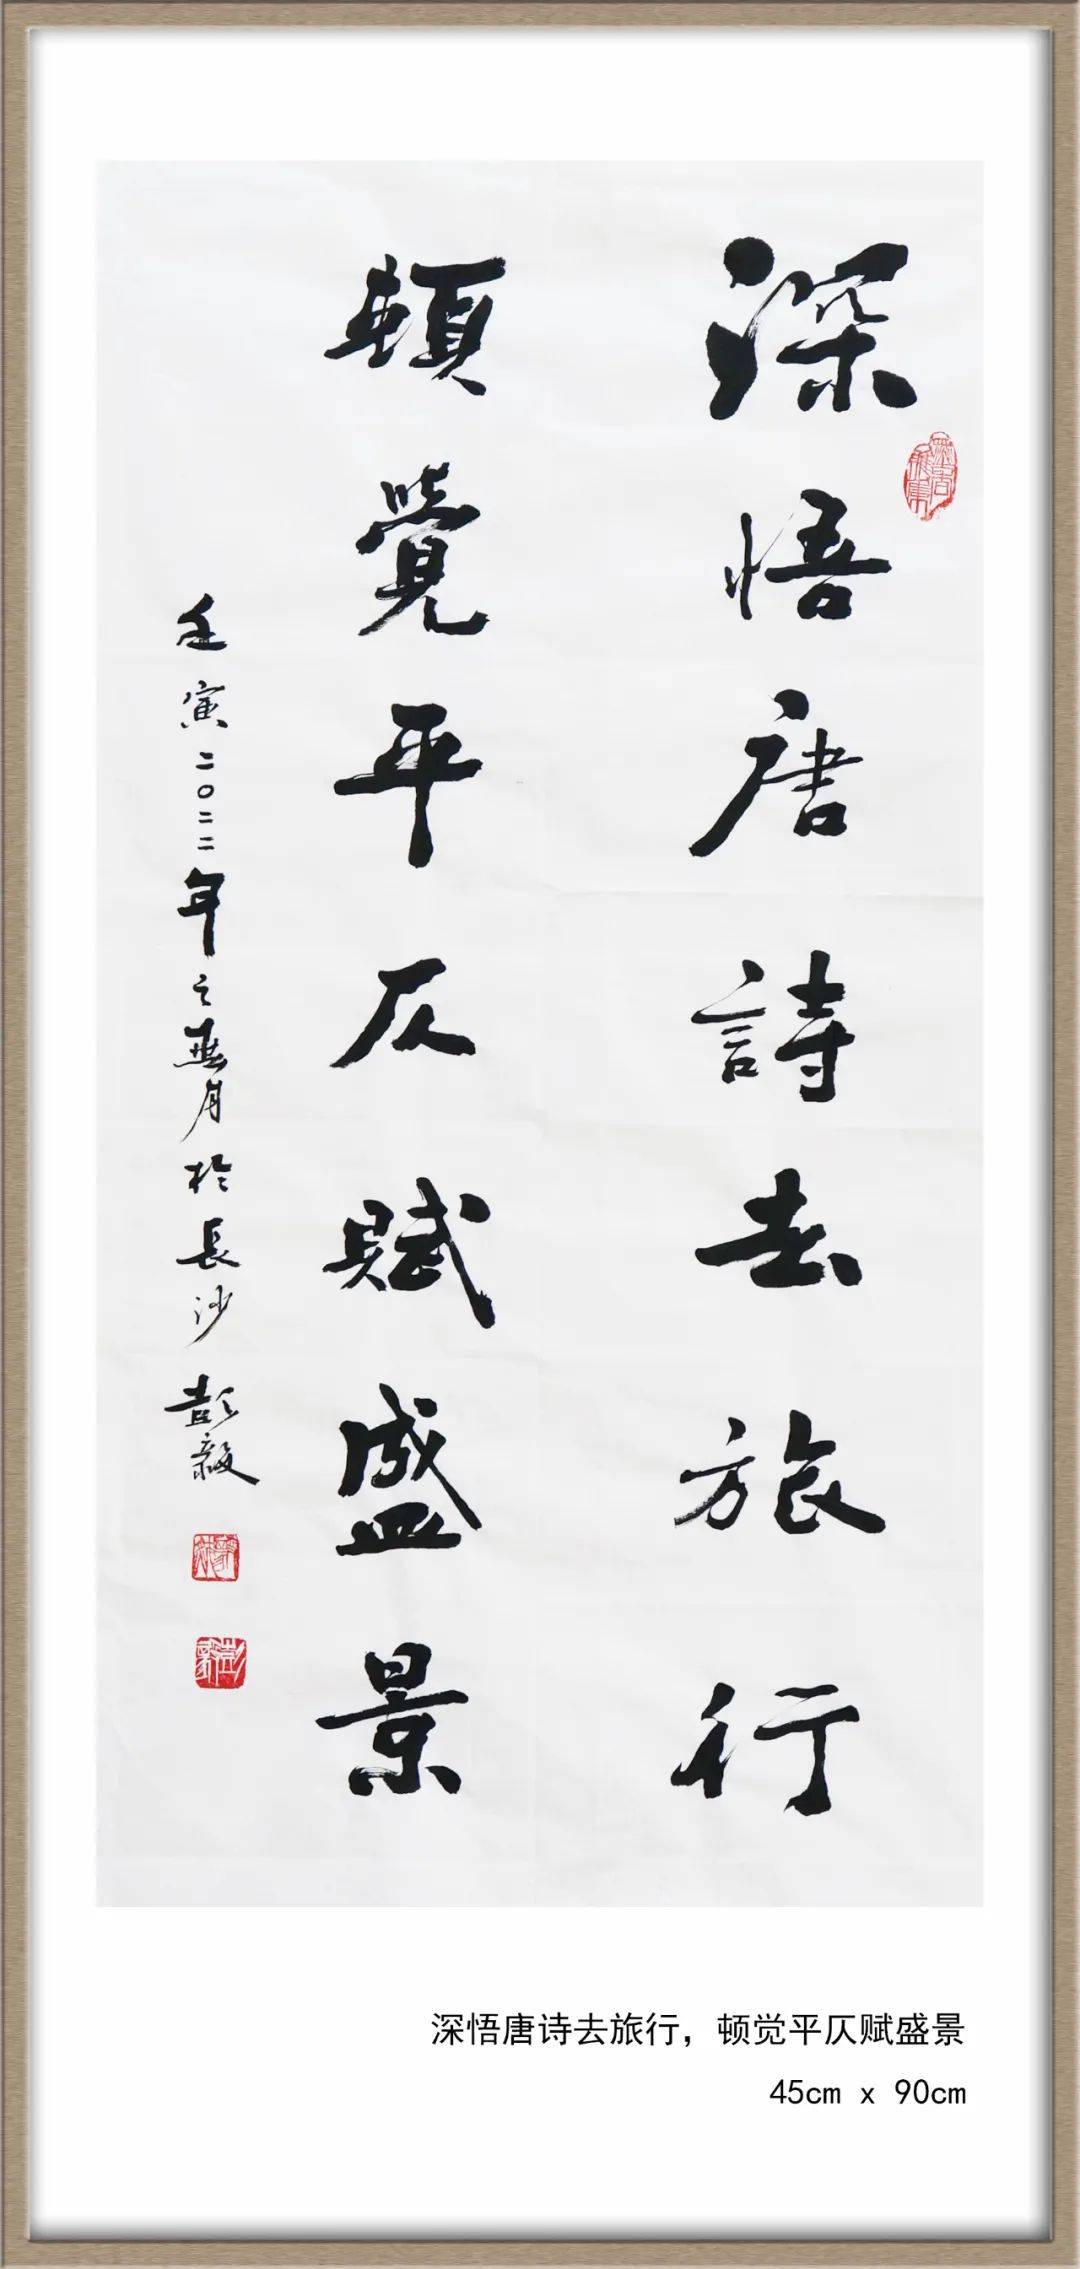 深悟唐詩去旅行
頓覺平仄賦盛景
壬寅二〇二二年之無月於長沙 彭毅
深悟唐诗去旅行，顿觉平仄赋盛景
45cm x 90cm